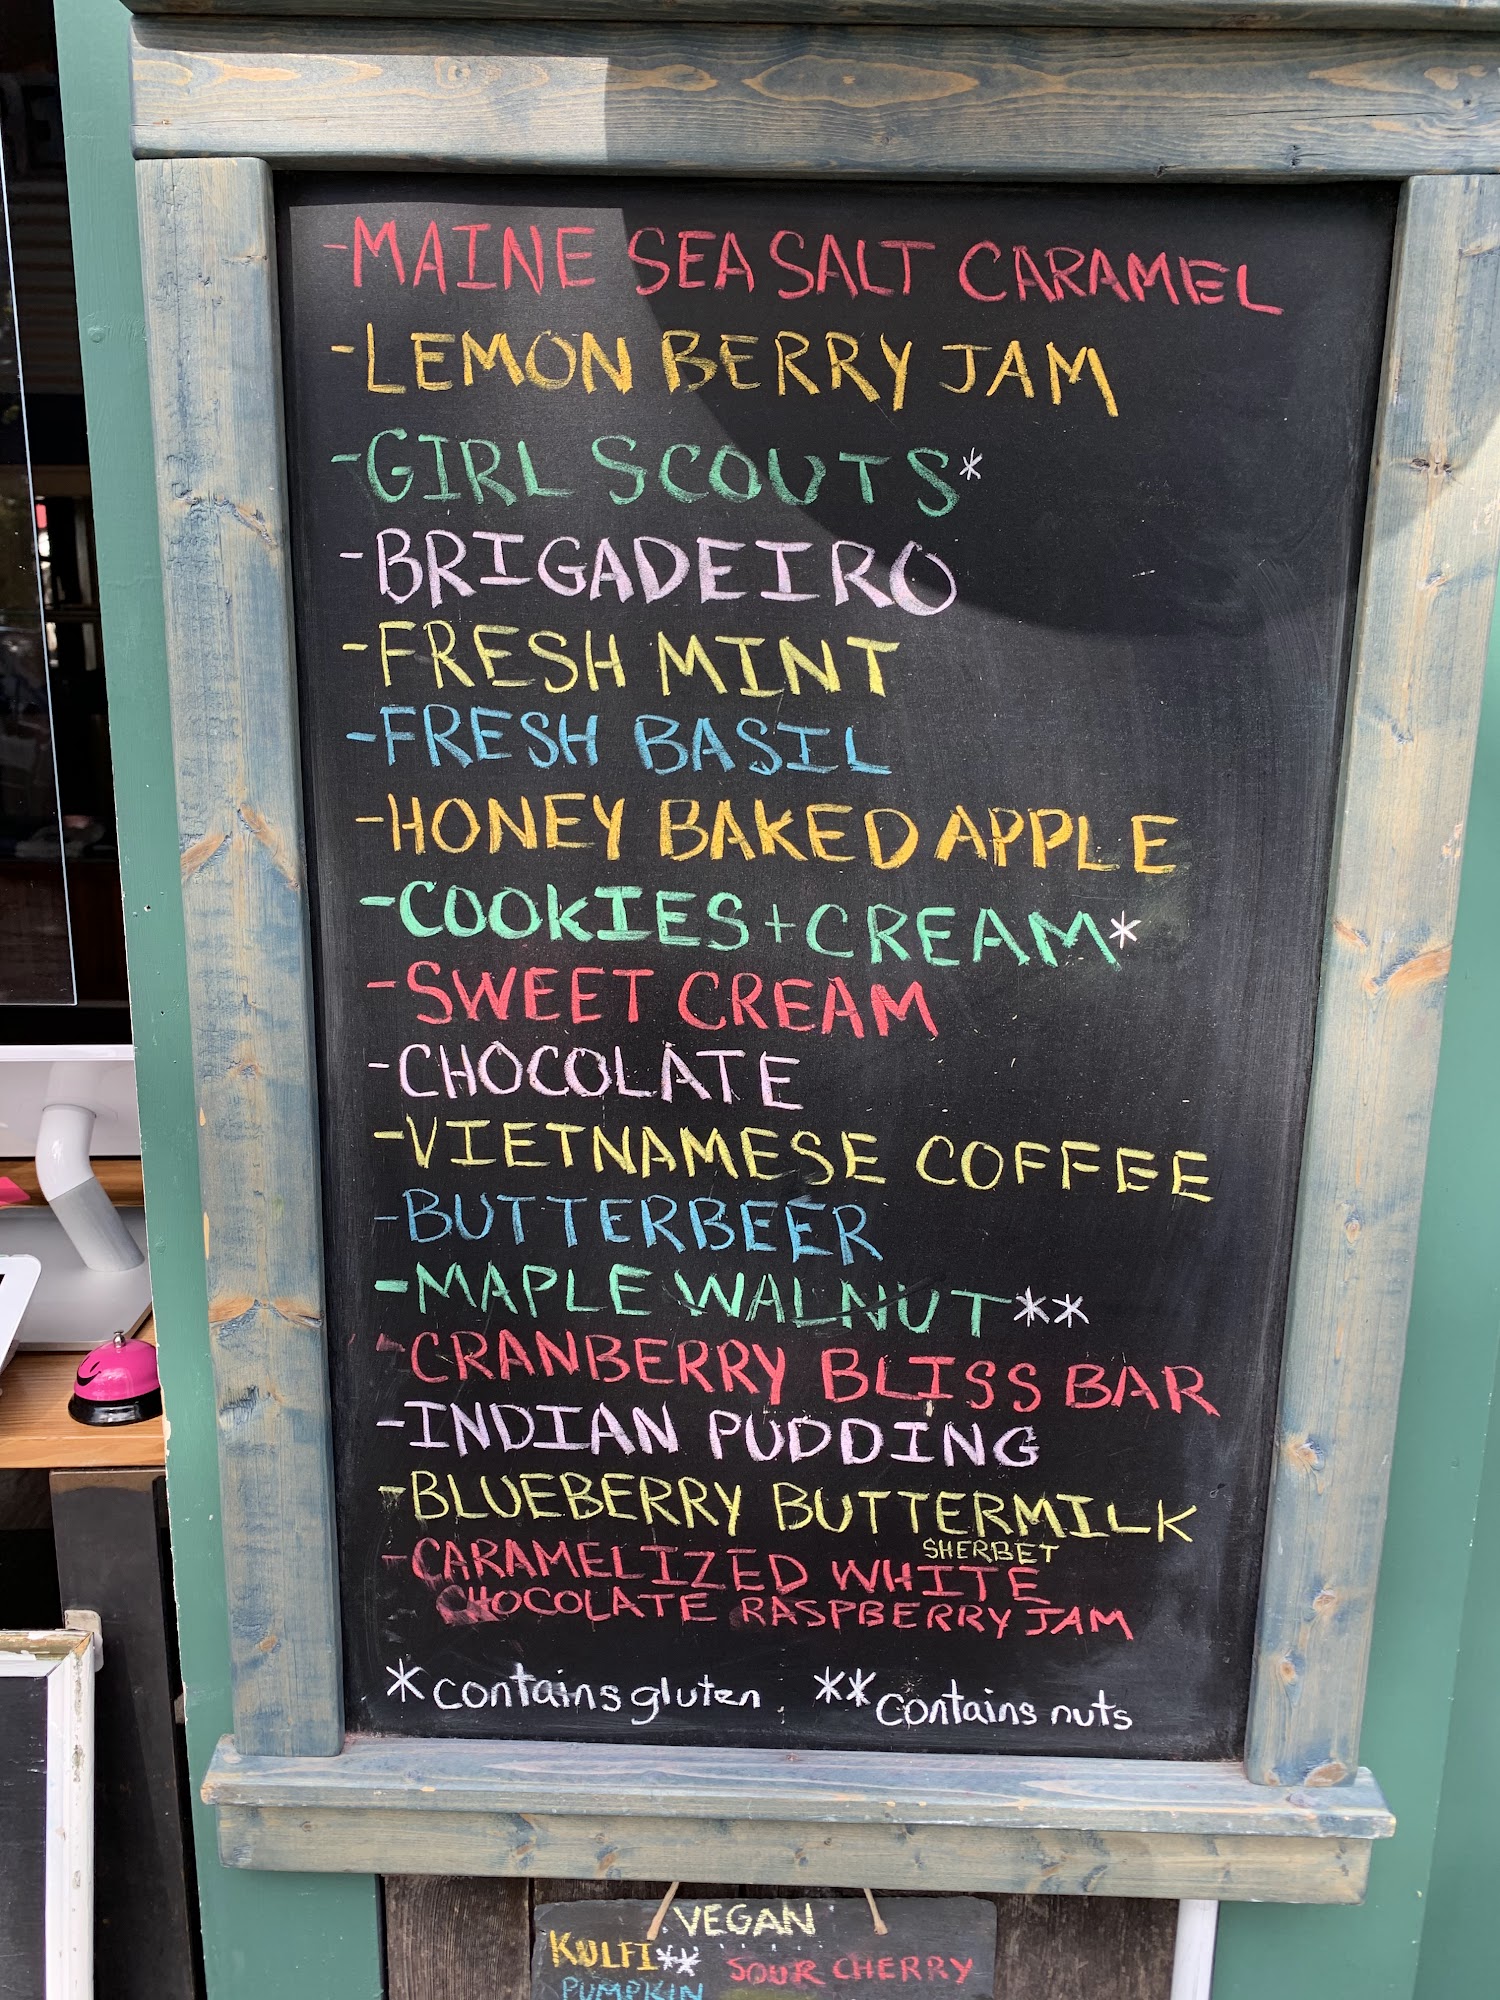 -MAINE SEA SALT CARAMEL
-LEMON BERRY JAM
-GIRL SCOUTS*
-BRIGADEIRO
-FRESH MINT
-FRESH BASIL
-HONEY BAKED APPLE
-COOKIES+CREAM*
-SWEET CREAM
-CHOCOLATE
-VIETNAMESE COFFEE
-BUTTERBEER
-MAPLE WALNUT**
-CRANBERRY BLISS BAR
-INDIAN PUDDING
-BLUEBERRY BUTTERMILK
SHERBET
-CARAMELIZED WHITE
CHOCOLATE RASPBERRY JAM
*contains gluten **contains nuts
VEGAN
KULFI** SOUR CHERRY
PUMPKIN